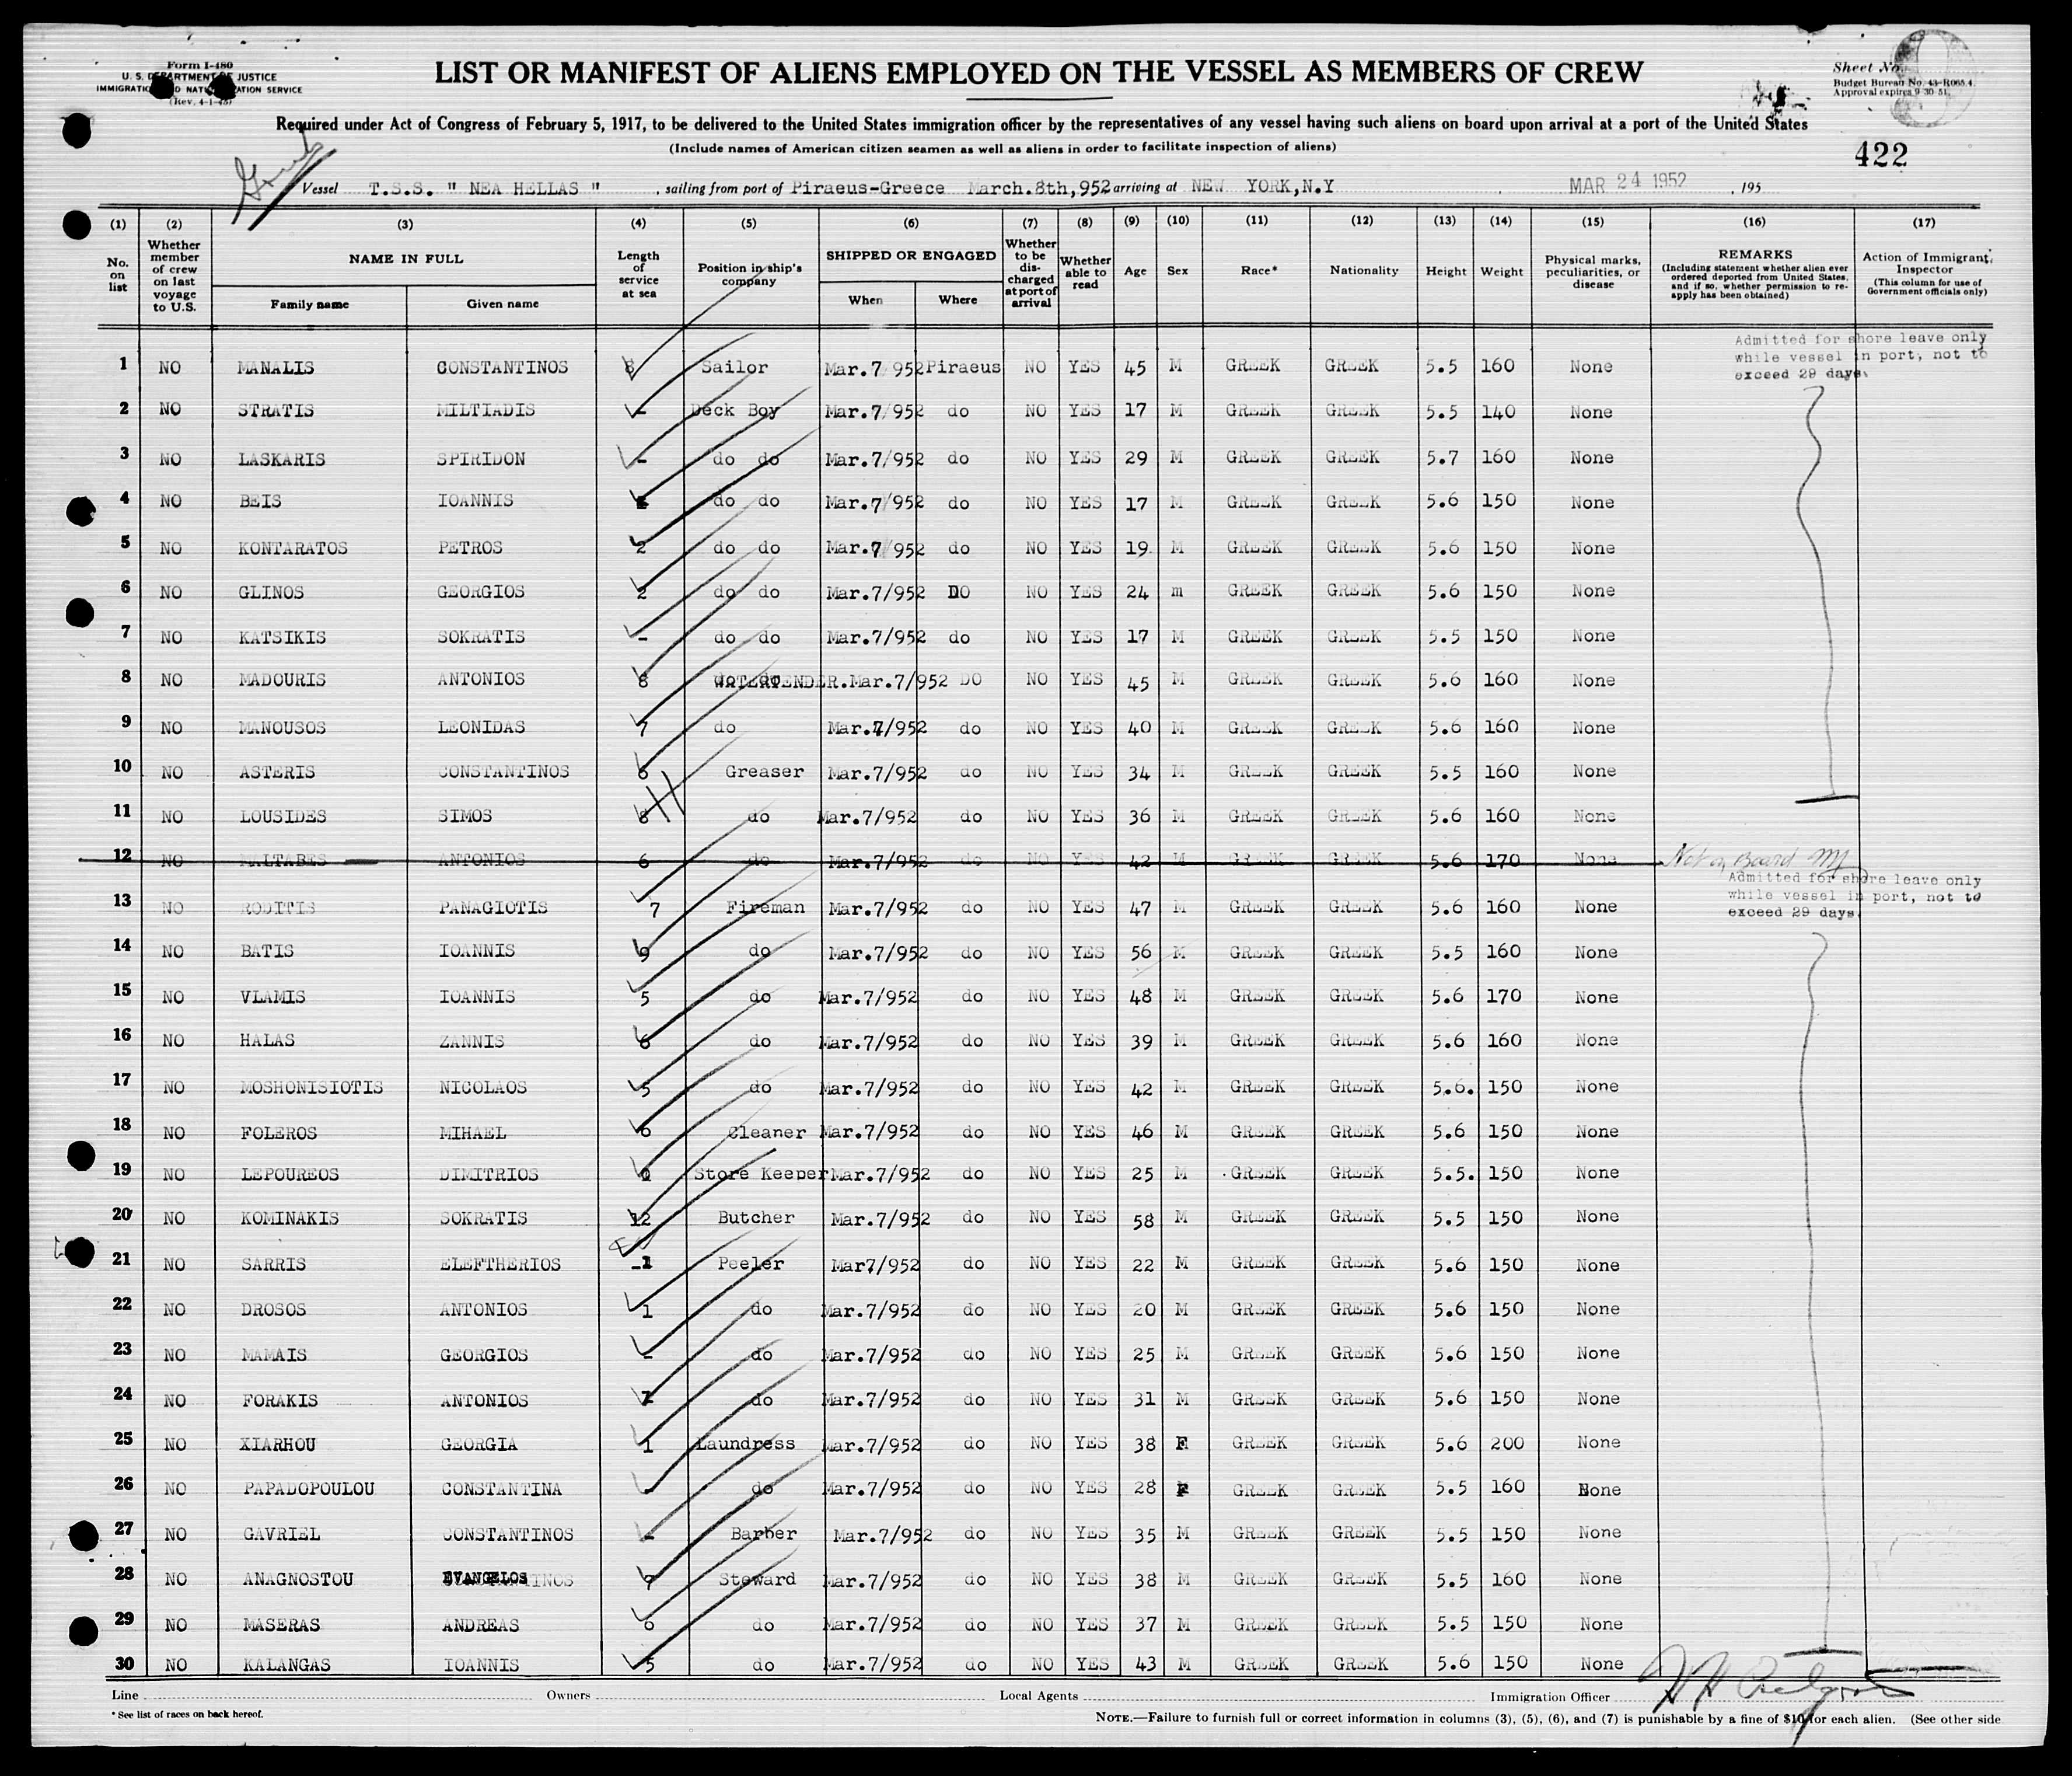 Form I-480
U. S. DEPARTMENT OF JUSTICE
IMMIGRATION AND NATURALIZATION SERVICE
(Rev. 4-1-48)
LIST OR MANIFEST OF ALIENS EMPLOYED ON THE VESSEL AS MEMBERS OF CREW
Sheet No.
Budget Bureau No. 43-R065.4.
Approval expires 9-30-51.
Required under Act of Congress of February 5, 1917, to be delivered to the United States immigration officer by the representatives of any vessel having such aliens on board upon arrival at a port of the United States
(Include names of American citizen seamen as well as aliens in order to facilitate inspection of aliens)
422
Vessel T.S.S. " NEA HELLAS " , sailing from port of Piraeus-Greece March.8th,952 arriving at NEW YORK,N.Y , MAR 24 1952 , 195
(1) (2) (3) (4) (5) (6) (7) (8) (9) (10) (11) (12) (13) (14) (15) (16) (17)
No. on list Whether member of crew on last voyage to U.S. NAME IN FULL Length of service at sea Position in ship's company SHIPPED OR ENGAGED Whether to be discharged at port of arrival Whether able to read Age Sex Race* Nationality Height Weight Physical marks, peculiarities, or disease REMARKS (Including statement whether alien ever ordered deported from United States, and if so, whether permission to reapply has been obtained) Action of Immigrant Inspector (This column for use of Government officials only)
Family name Given name When Where
Admitted for shore leave only
while vessel in port, not to
exceed 29 days.
1 NO MANALIS CONSTANTINOS 8 Sailor Mar.7 952 Piraeus NO YES 45 M GREEK GREEK 5.5 160 None
2 NO STRATIS MILTIADIS - Deck Boy Mar.7/952 do NO YES 17 M GREEK GREEK 5.5 140 None
3 NO LASKARIS SPIRIDON - do do Mar.7/952 do NO YES 29 M GREEK GREEK 5.7 160 None
4 NO BEIS IOANNIS do do Mar.7/952 do NO YES 17 M GREEK GREEK 5.6 150 None
5 NO KONTARATOS PETROS 2 do do Mar.7 952 do NO YES 19 M GREEK GREEK 5.6 150 None
6 NO GLINOS GEORGIOS 2 do do Mar.7/952 DO NO YES 24 m GREEK GREEK 5.6 150 None
7 NO KATSIKIS SOKRATIS - do do Mar.7/952 do NO YES 17 M GREEK GREEK 5.5 150 None
8 NO MADOURIS ANTONIOS 8 WATERTENDER. Mar.7/952 DO NO YES 45 M GREEK GREEK 5.6 160 None
9 NO MANOUSOS LEONIDAS 7 do Mar.7/952 do NO YES 40 M GREEK GREEK 5.6 160 None
10 NO ASTERIS CONSTANTINOS 6 Greaser Mar.7/952 do NO YES 34 M GREEK GREEK 5.5 160 None
11 NO LOUSIDES SIMOS 8 do Mar.7/952 do NO YES 36 M GREEK GREEK 5.6 160 None
12 NO MALTABES ANTONIOS 6 do Mar.7/952 do NO YES 42 M GREEK GREEK 5.6 170 None Not on Board
Admitted for shore leave only
while vessel in port, not to
exceed 29 days.
13 NO RODITIS PANAGIOTIS 7 Fireman Mar.7/952 do NO YES 47 M GREEK GREEK 5.6 160 None
14 NO BATIS IOANNIS 9 do Mar.7/952 do NO YES 56 M GREEK GREEK 5.5 160 None
15 NO VLAMIS IOANNIS 5 do Mar.7/952 do NO YES 48 M GREEK GREEK 5.6 170 None
16 NO HALAS ZANNIS 6 do Mar.7/952 do NO YES 39 M GREEK GREEK 5.6 160 None
17 NO MOSHONISIOTIS NICOLAOS 5 do Mar.7/952 do NO YES 42 M GREEK GREEK 5.6. 150 None
18 NO FOLEROS MIHAEL 6 Cleaner Mar.7/952 do NO YES 46 M GREEK GREEK 5.6 150 None
19 NO LEPOUREOS DIMITRIOS Store Keeper Mar.7/952 do NO YES 25 M GREEK GREEK 5.5. 150 None
20 NO KOMINAKIS SOKRATIS 12 Butcher Mar.7/952 do NO YES 58 M GREEK GREEK 5.5 150 None
21 NO SARRIS ELEFTHERIOS 1 Peeler Mar7/952 do NO YES 22 M GREEK GREEK 5.6 150 None
22 NO DROSOS ANTONIOS 1 do Mar.7/952 do NO YES 20 M GREEK GREEK 5.6 150 None
23 NO MAMAIS GEORGIOS - do Mar.7/952 do NO YES 25 M GREEK GREEK 5.6 150 None
24 NO FORAKIS ANTONIOS do Mar.7/952 do NO YES 31 M GREEK GREEK 5.6 150 None
25 NO XIARHOU GEORGIA 1 Laundress Mar.7/952 do NO YES 38 F GREEK GREEK 5.6 200 None
26 NO PAPADOPOULOU CONSTANTINA - do Mar.7/952 do NO YES 28 F GREEK GREEK 5.5 160 None
27 NO GAVRIEL CONSTANTINOS - Barber Mar.7/952 do NO YES 35 M GREEK GREEK 5.5 150 None
28 NO ANAGNOSTOU EVANGELOS 7 Steward Mar.7/952 do NO YES 38 M GREEK GREEK 5.5 160 None
29 NO MASERAS ANDREAS 6 do Mar.7/952 do NO YES 37 M GREEK GREEK 5.5 150 None
30 NO KALANGAS IOANNIS 5 do Mar.7/952 do NO YES 43 M GREEK GREEK 5.6 150 None
Line Owners Local Agents Immigration Officer
* See list of races on back hereof.
NOTE.—Failure to furnish full or correct information in columns (3), (5), (6), and (7) is punishable by a fine of $10 for each alien. (See other side